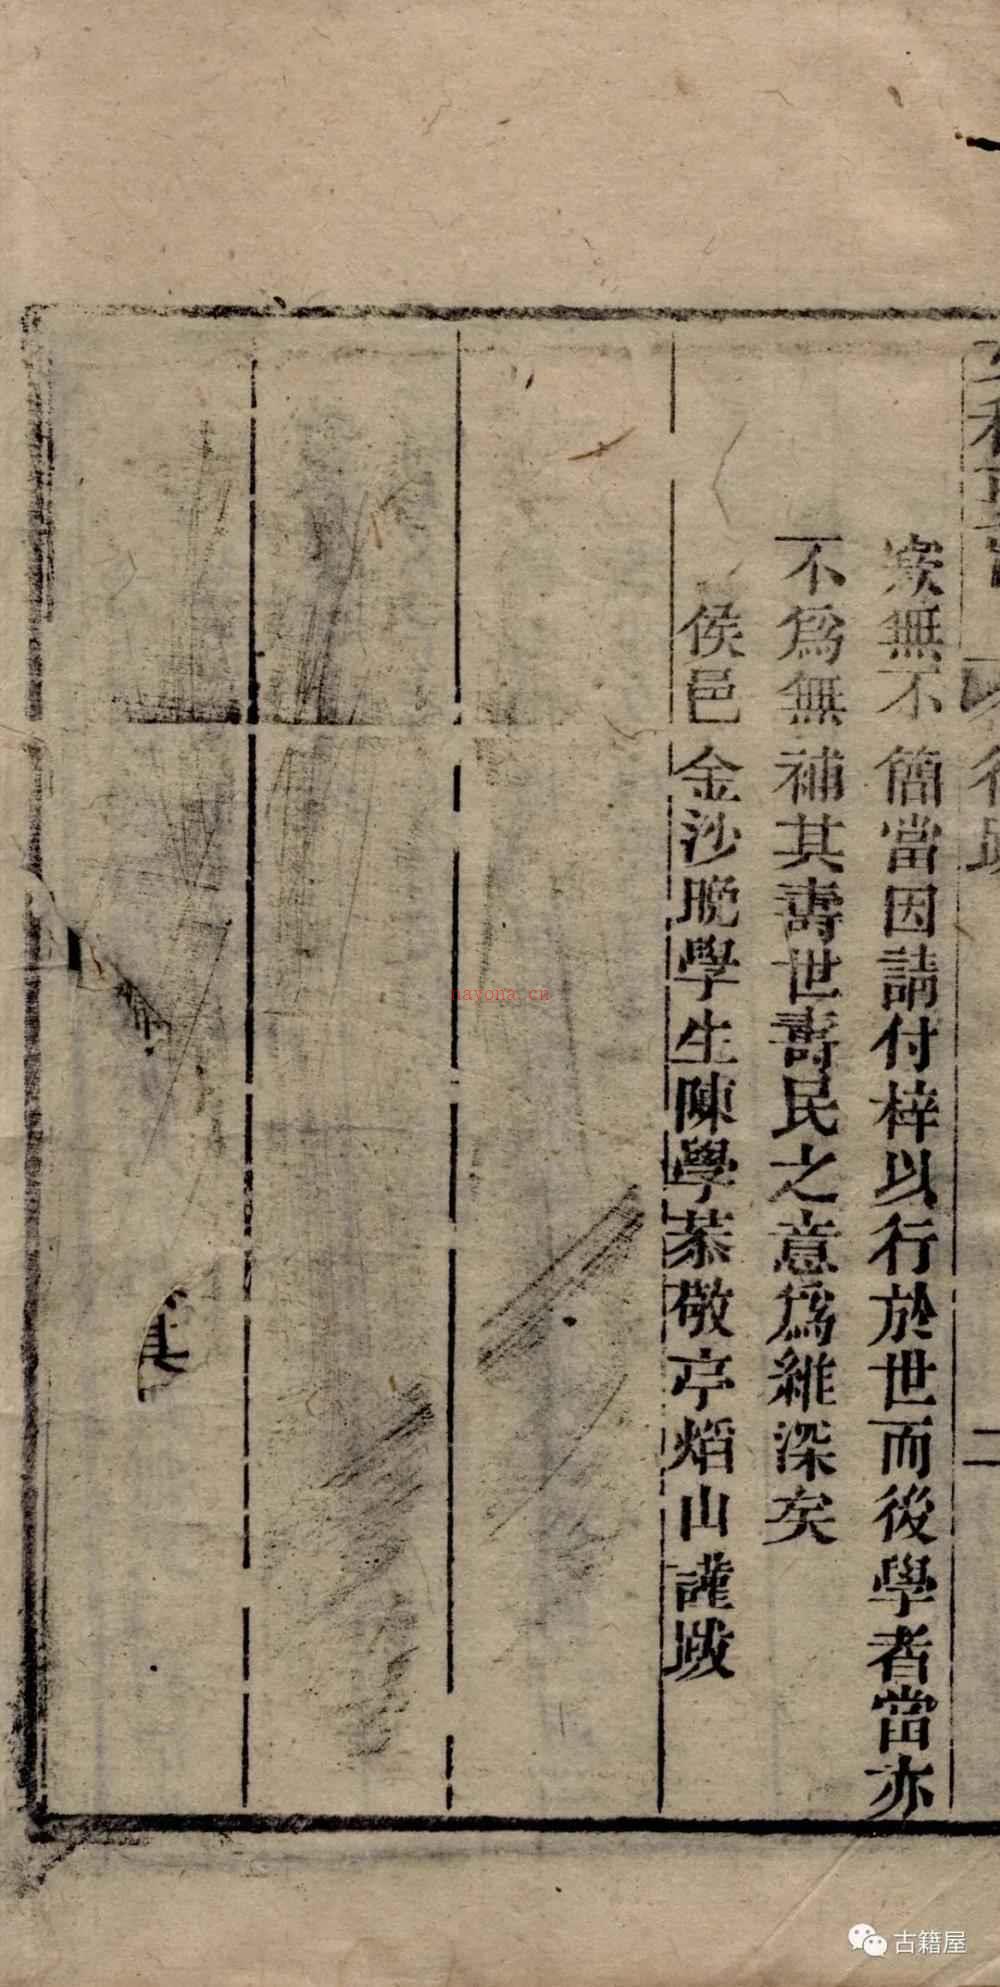 寀無不簡當因請付梓以行於世而後學者當亦
不為無補其壽世壽民之意為維深矣
侯邑金沙晚學生陳學恭敬亭熖山謹跋
二
nayona.cn
古籍屋